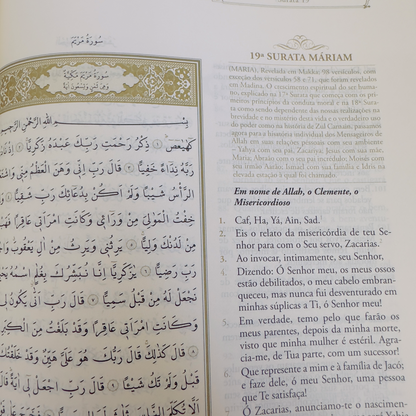 Surata 19
سورة مريم
سورة مريم مكية
وهي ثمان وتسعون آية
بسم الله الرحمن الرحيم
كهيعص ١ ذكر رحمت ربك عبده زكريا ٢ إذ نادى
ربه نداء خفيا ٣ قال رب إني وهن العظم مني
الرأس شيبا ولم أكن بدعائك رب شقيا ٤
خفت الموالي من وراءي وكانت امرأتي عاقرا
من لدنك وليا ٥ يرثني ويرث من آل يعقوب
رب رضيا ٦ يزكريا إنا نبشرك بغلم اسمه يحيى
نجعل له من قبل سميا ٧ قال رب أنى يكون لي
وكانت امرأتي عاقرا وقد بلغت من الكبر
٨ قال كذلك قال ربك هو علي هين وقد خلقتك
قبل ولم تك شيئا ٩ قال رب اجعل لي آية
ألا تكلم الناس
19ª SURATA MÁRIAM
(MARIA). Revelada em Makka; 98 versículos, com
exceção dos versículos 58 e 71, que foram revelados
em Madina. O crescimento espiritual do ser huma-
no, explicado na 17ª Surata que começa com os pri-
meiros princípios da conduta moral e na 18ª Sura-
ta como sendo dependente de nossas realizações na
brevidade e no mistério desta vida e o verdadeiro uso
do poder como na história de Zul Carnain, passamos
agora para a história individual dos Mensageiros de
Allah em suas relações pessoais com seu ambiente
– Yahya com seu pai, Zacarias; Jesus com sua mãe,
Maria; Abraão com o seu pai incrédulo; Moisés com
seu irmão Aarão; Ismael com sua família e Idris na
elevada estação à qual foi chamado.
Em nome de Allah, o Clemente, o
Misericordioso
1. Caf, Ha, Yá, Ain, Sad.
2. Eis o relato da misericórdia de teu Se-
nhor para com o Seu servo, Zacarias.
3. Ao invocar, intimamente, seu Senhor,
4. Dizendo: Ó Senhor meu, os meus ossos
estão debilitados, o meu cabelo embran-
queceu, mas nunca fui desventurado em
minhas súplicas a Ti, ó Senhor meu!
5. Em verdade, temo pelo que farão os
meus parentes, depois da minha morte,
visto que minha mulher é estéril. Agra-
cia-me, de Tua parte, com um sucessor!
6. Que represente a mim e à família de Jacó;
e faze dele, ó meu Senhor, uma pessoa
que Te satisfaça!
Ó Zacarias, anunciamo-te o nascimen-